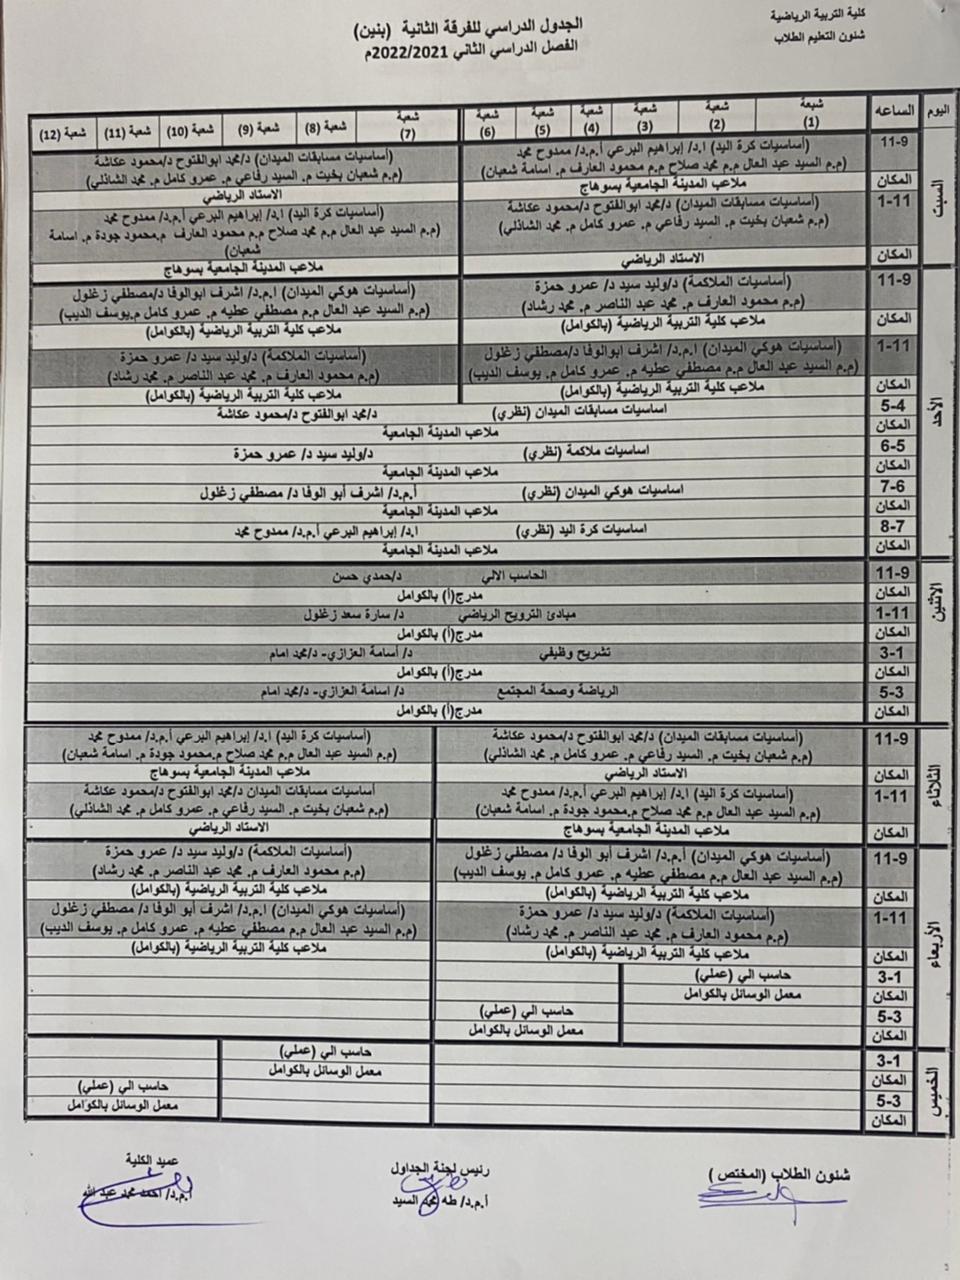 كلية التربية الرياضية
شئون التعليم الطلاب
الجدول الدراسي للفرقة الثانية (بنين)
الفصل الدراسي الثاني 2022/2021م
اليوم الساعه شعبة (1) شعبة (2) شعبة (3) شعبة (4) شعبة (5) شعبة (6) شعبة (7) شعبة (8) شعبة (9) شعبة (10) شعبة (11) شعبة (12)
السبت
11-9
(أساسيات كرة اليد) ا.د/ إبراهيم البرعي أ.م.د/ ممدوح محمد
(م.م السيد عبد العال م.م محمد صلاح م.م محمود العارف م. اسامة شعبان)
(أساسيات مسابقات الميدان) د/محمد ابوالفتوح د/محمود عكاشة
(م.م شعبان بخيت م. السيد رفاعي م. عمرو كامل م. محمد الشاذلي)
المكان
ملاعب المدينة الجامعية بسوهاج
الاستاد الرياضي
1-11
(أساسيات مسابقات الميدان) د/محمد ابوالفتوح د/محمود عكاشة
(م.م شعبان بخيت م. السيد رفاعي م. عمرو كامل م. محمد الشاذلي)
(أساسيات كرة اليد) ا.د/ إبراهيم البرعي أ.م.د/ ممدوح محمد
(م.م السيد عبد العال م.م محمد صلاح م.م محمود العارف م.محمود جودة م. اسامة
شعبان)
المكان
الاستاد الرياضي
ملاعب المدينة الجامعية بسوهاج
الأحد
11-9
(أساسيات الملاكمة) د/وليد سيد د/ عمرو حمزة
(م.م محمود العارف م. محمد عبد الناصر م. محمد رشاد)
(أساسيات هوكي الميدان) ا.م.د/ اشرف ابوالوفا د/مصطفي زغلول
(م.م السيد عبد العال م.م مصطفي عطيه م. عمرو كامل م.يوسف الديب)
المكان
ملاعب كلية التربية الرياضية (بالكوامل)
ملاعب كلية التربية الرياضية (بالكوامل)
1-11
(أساسيات هوكي الميدان) ا.م.د/ اشرف ابوالوفا د/مصطفي زغلول
(م.م السيد عبد العال م.م مصطفي عطيه م. عمرو كامل م. يوسف الديب)
(أساسيات الملاكمة) د/وليد سيد د/ عمرو حمزة
(م.م محمود العارف م. محمد عبد الناصر م. محمد رشاد)
المكان
ملاعب كلية التربية الرياضية (بالكوامل)
ملاعب كلية التربية الرياضية (بالكوامل)
5-4 اساسيات مسابقات الميدان (نظري) د/محمد ابوالفتوح د/محمود عكاشة
المكان ملاعب المدينة الجامعية
6-5 اساسيات ملاكمة (نظري) د/وليد سيد د/ عمرو حمزة
المكان ملاعب المدينة الجامعية
7-6 اساسيات هوكي الميدان (نظري) أ.م.د/ اشرف أبو الوفا د/ مصطفي زغلول
المكان ملاعب المدينة الجامعية
8-7 اساسيات كرة اليد (نظري) ا.د/ إبراهيم البرعي أ.م.د/ ممدوح محمد
المكان ملاعب المدينة الجامعية
الاثنين
11-9 الحاسب الالي د/حمدي حسن
المكان مدرج(أ) بالكوامل
1-11 مبادئ الترويح الرياضي د/ سارة سعد زغلول
المكان مدرج(أ) بالكوامل
3-1 تشريح وظيفي د/ أسامة العزازي- د/محمد امام
المكان مدرج(أ) بالكوامل
5-3 الرياضة وصحة المجتمع د/ اسامة العزازي- د/محمد امام
المكان مدرج(أ) بالكوامل
الثلاثاء
11-9
(أساسيات مسابقات الميدان) د/محمد ابوالفتوح د/محمود عكاشة
(م.م شعبان بخيت م. السيد رفاعي م. عمرو كامل م. محمد الشاذلي)
(أساسيات كرة اليد) ا.د/ إبراهيم البرعي أ.م.د/ ممدوح محمد
(م.م السيد عبد العال م.م محمد صلاح م.محمود جودة م. اسامة شعبان)
المكان
الاستاد الرياضي
ملاعب المدينة الجامعية بسوهاج
1-11
(أساسيات كرة اليد) ا.د/ إبراهيم البرعي أ.م.د/ ممدوح محمد
(م.م السيد عبد العال م.م محمد صلاح م.محمود جودة م. اسامة شعبان)
أساسيات مسابقات الميدان د/محمد ابوالفتوح د/محمود عكاشة
(م.م شعبان بخيت م. السيد رفاعي م. عمرو كامل م. محمد الشاذلي)
المكان
ملاعب المدينة الجامعية بسوهاج
الاستاد الرياضي
الأربعاء
11-9
(أساسيات هوكي الميدان) أ.م.د/ اشرف أبو الوفا د/ مصطفي زغلول
(م.م السيد عبد العال م.م مصطفي عطيه م. عمرو كامل م. يوسف الديب)
(أساسيات الملاكمة) د/وليد سيد د/ عمرو حمزة
(م.م محمود العارف م. محمد عبد الناصر م. محمد رشاد)
المكان
ملاعب كلية التربية الرياضية (بالكوامل)
ملاعب كلية التربية الرياضية (بالكوامل)
1-11
(أساسيات الملاكمة) د/وليد سيد د/ عمرو حمزة
(م.م محمود العارف م. محمد عبد الناصر م. محمد رشاد)
(أساسيات هوكي الميدان) ا.م.د/ اشرف أبو الوفا د/ مصطفي زغلول
(م.م السيد عبد العال م.م مصطفي عطيه م. عمرو كامل م. يوسف الديب)
المكان
ملاعب كلية التربية الرياضية (بالكوامل)
ملاعب كلية التربية الرياضية (بالكوامل)
3-1 حاسب الي (عملي)
المكان معمل الوسائل بالكوامل
5-3 حاسب الي (عملي)
المكان معمل الوسائل بالكوامل
الخميس
3-1 حاسب الي (عملي)
المكان معمل الوسائل بالكوامل
5-3 حاسب الي (عملي)
المكان معمل الوسائل بالكوامل
شئون الطلاب (المختص )
رئيس لجنة الجداول
أ.م.د/ طه محمد السيد
عميد الكلية
أ.م.د/ احمد محمد عبد الله